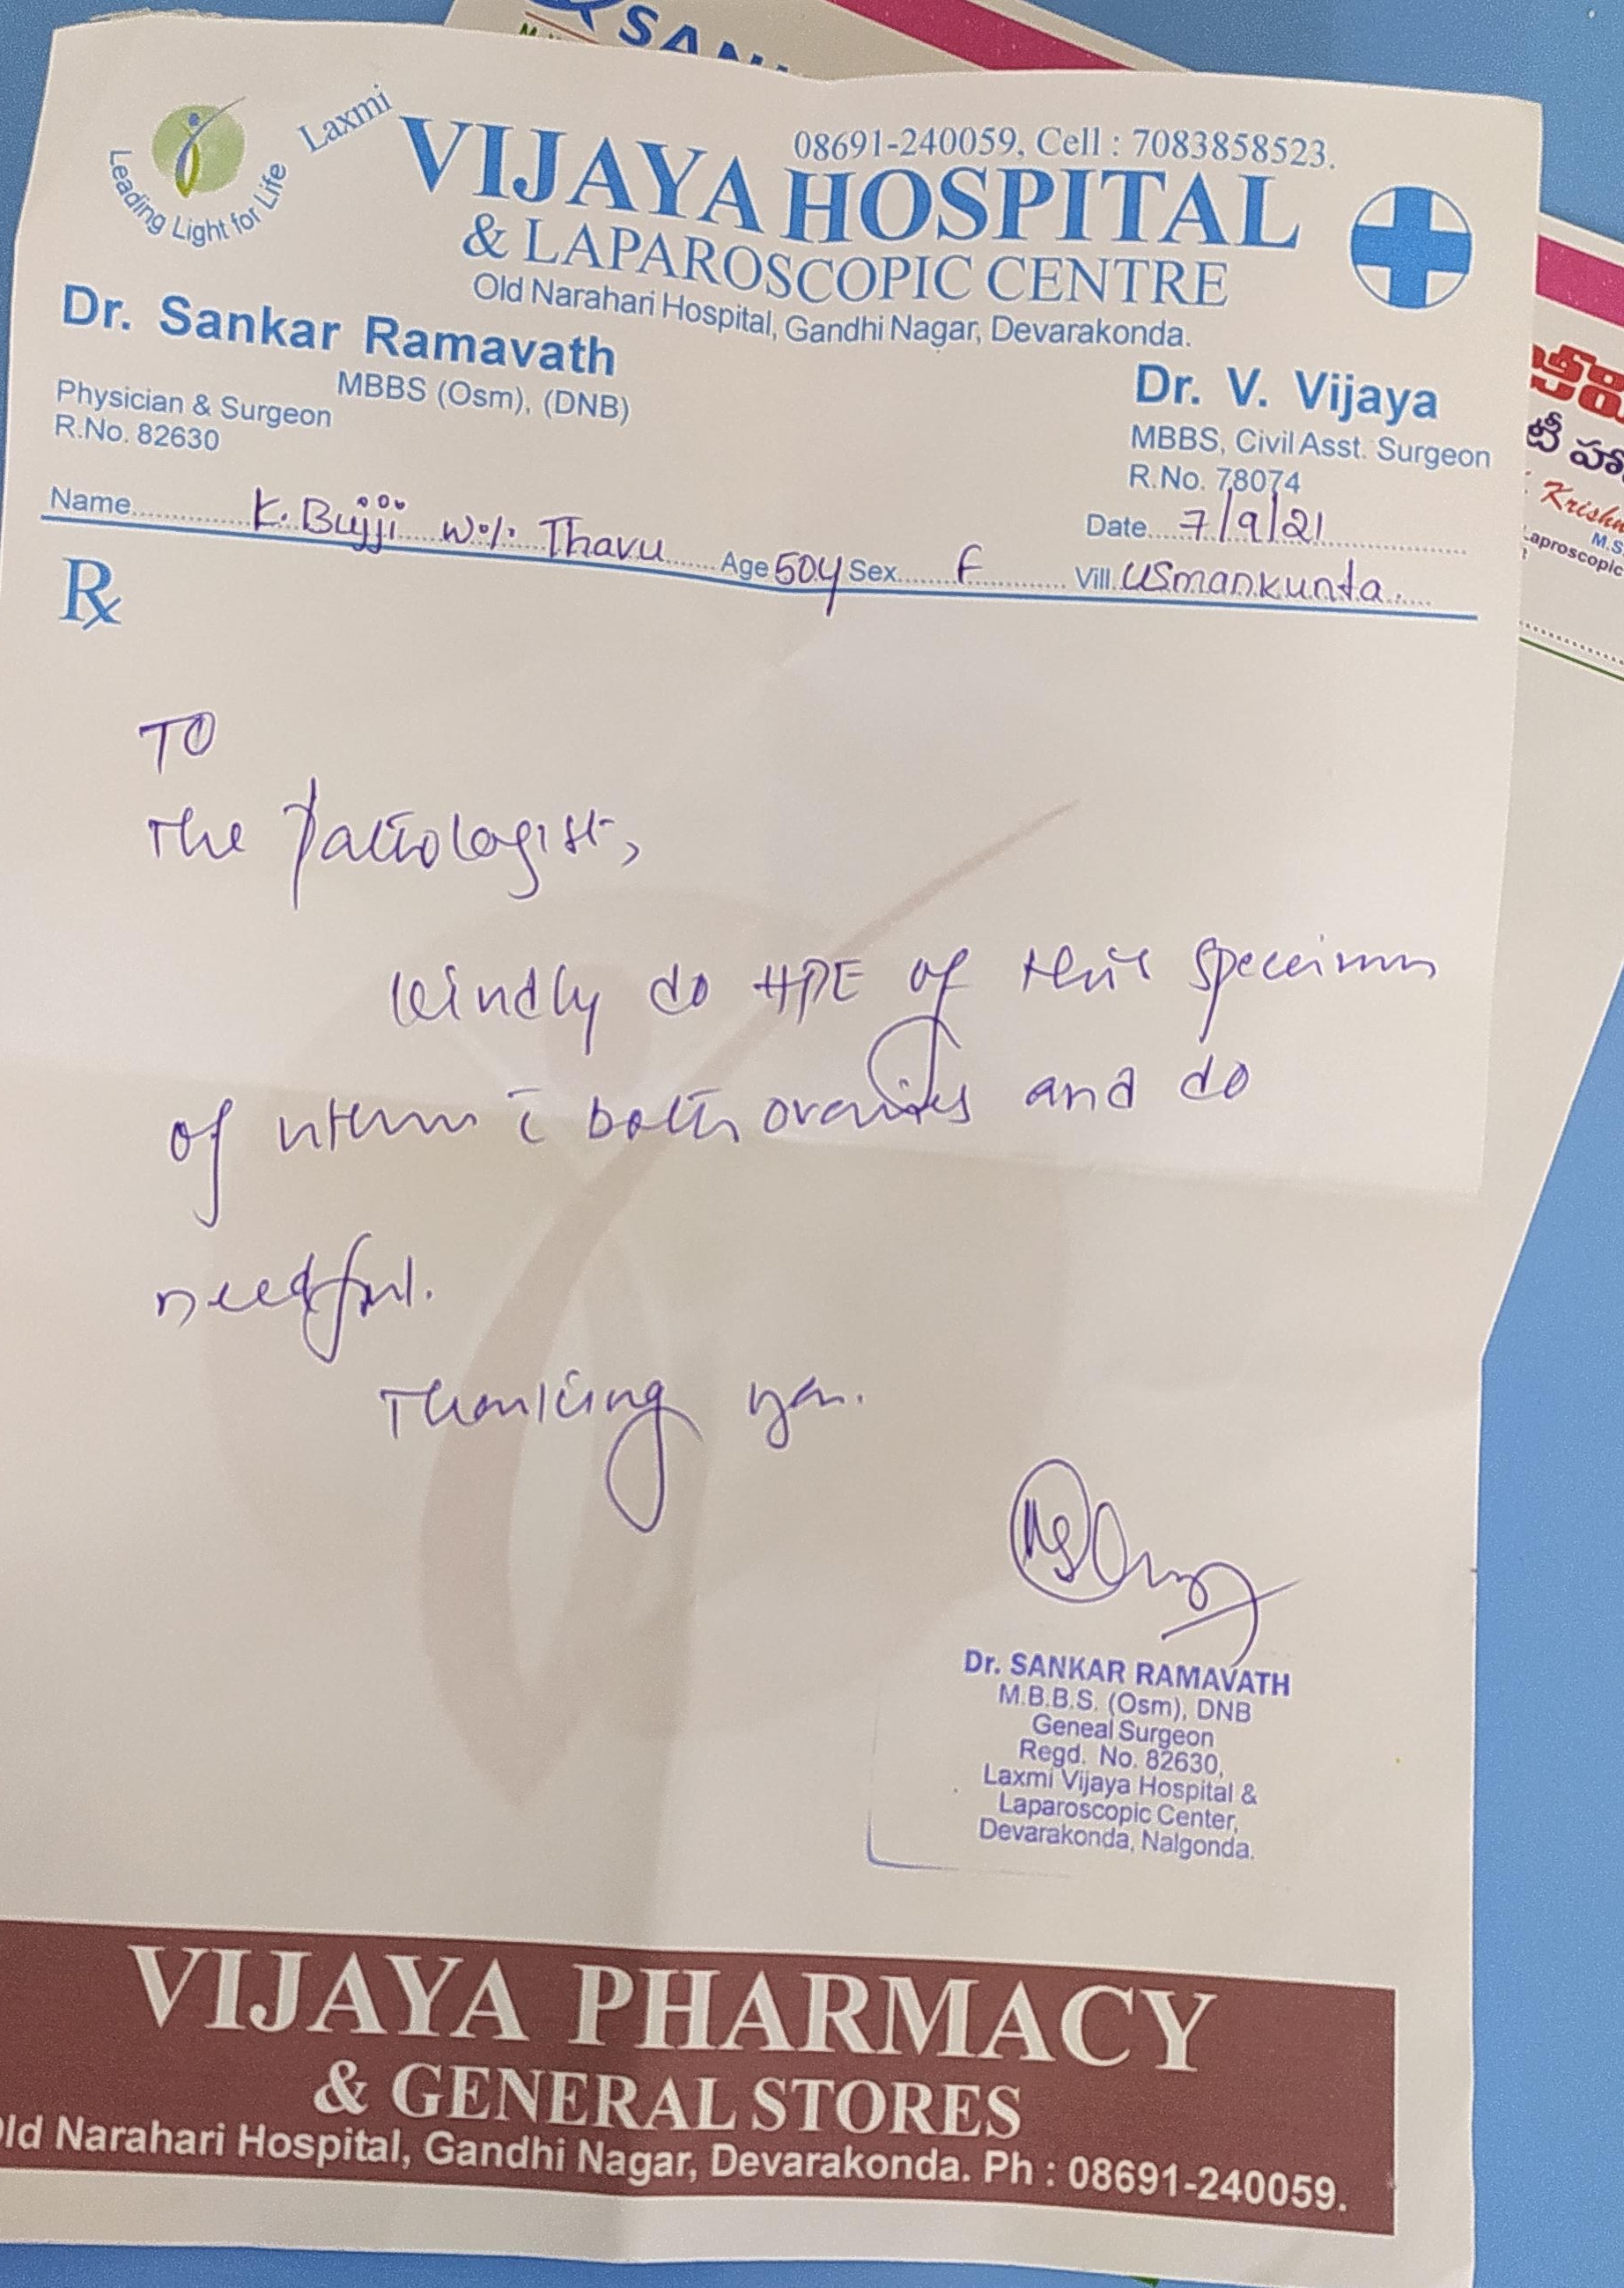 SAN
Leading Light for Life
Laxmi
08691-240059, Cell : 7083858523.
VIJAYA HOSPITAL
& LAPAROSCOPIC CENTRE
Old Narahari Hospital, Gandhi Nagar, Devarakonda.
Dr. Sankar Ramavath
MBBS (Osm), (DNB)
Physician & Surgeon
R.No. 82630
Dr. V. Vijaya
MBBS, Civil Asst. Surgeon
R.No. 78074
Date 7/9/21
Name K. Bujji w/o Thavu Age 50y Sex F Vill. Usmankunta.
Rx
TO
The Pathologist,
Kindly do HPE of this specimen
of uterus c̄ both ovaries and do
needful.
Thanking you.
Dr. SANKAR RAMAVATH
M.B.B.S. (Osm), DNB
Geneal Surgeon
Regd. No. 82630,
Laxmi Vijaya Hospital &
Laparoscopic Center,
Devarakonda, Nalgonda.
VIJAYA PHARMACY
& GENERAL STORES
Old Narahari Hospital, Gandhi Nagar, Devarakonda. Ph : 08691-240059.
టీ హా
Krishn
M.S
Laproscopic